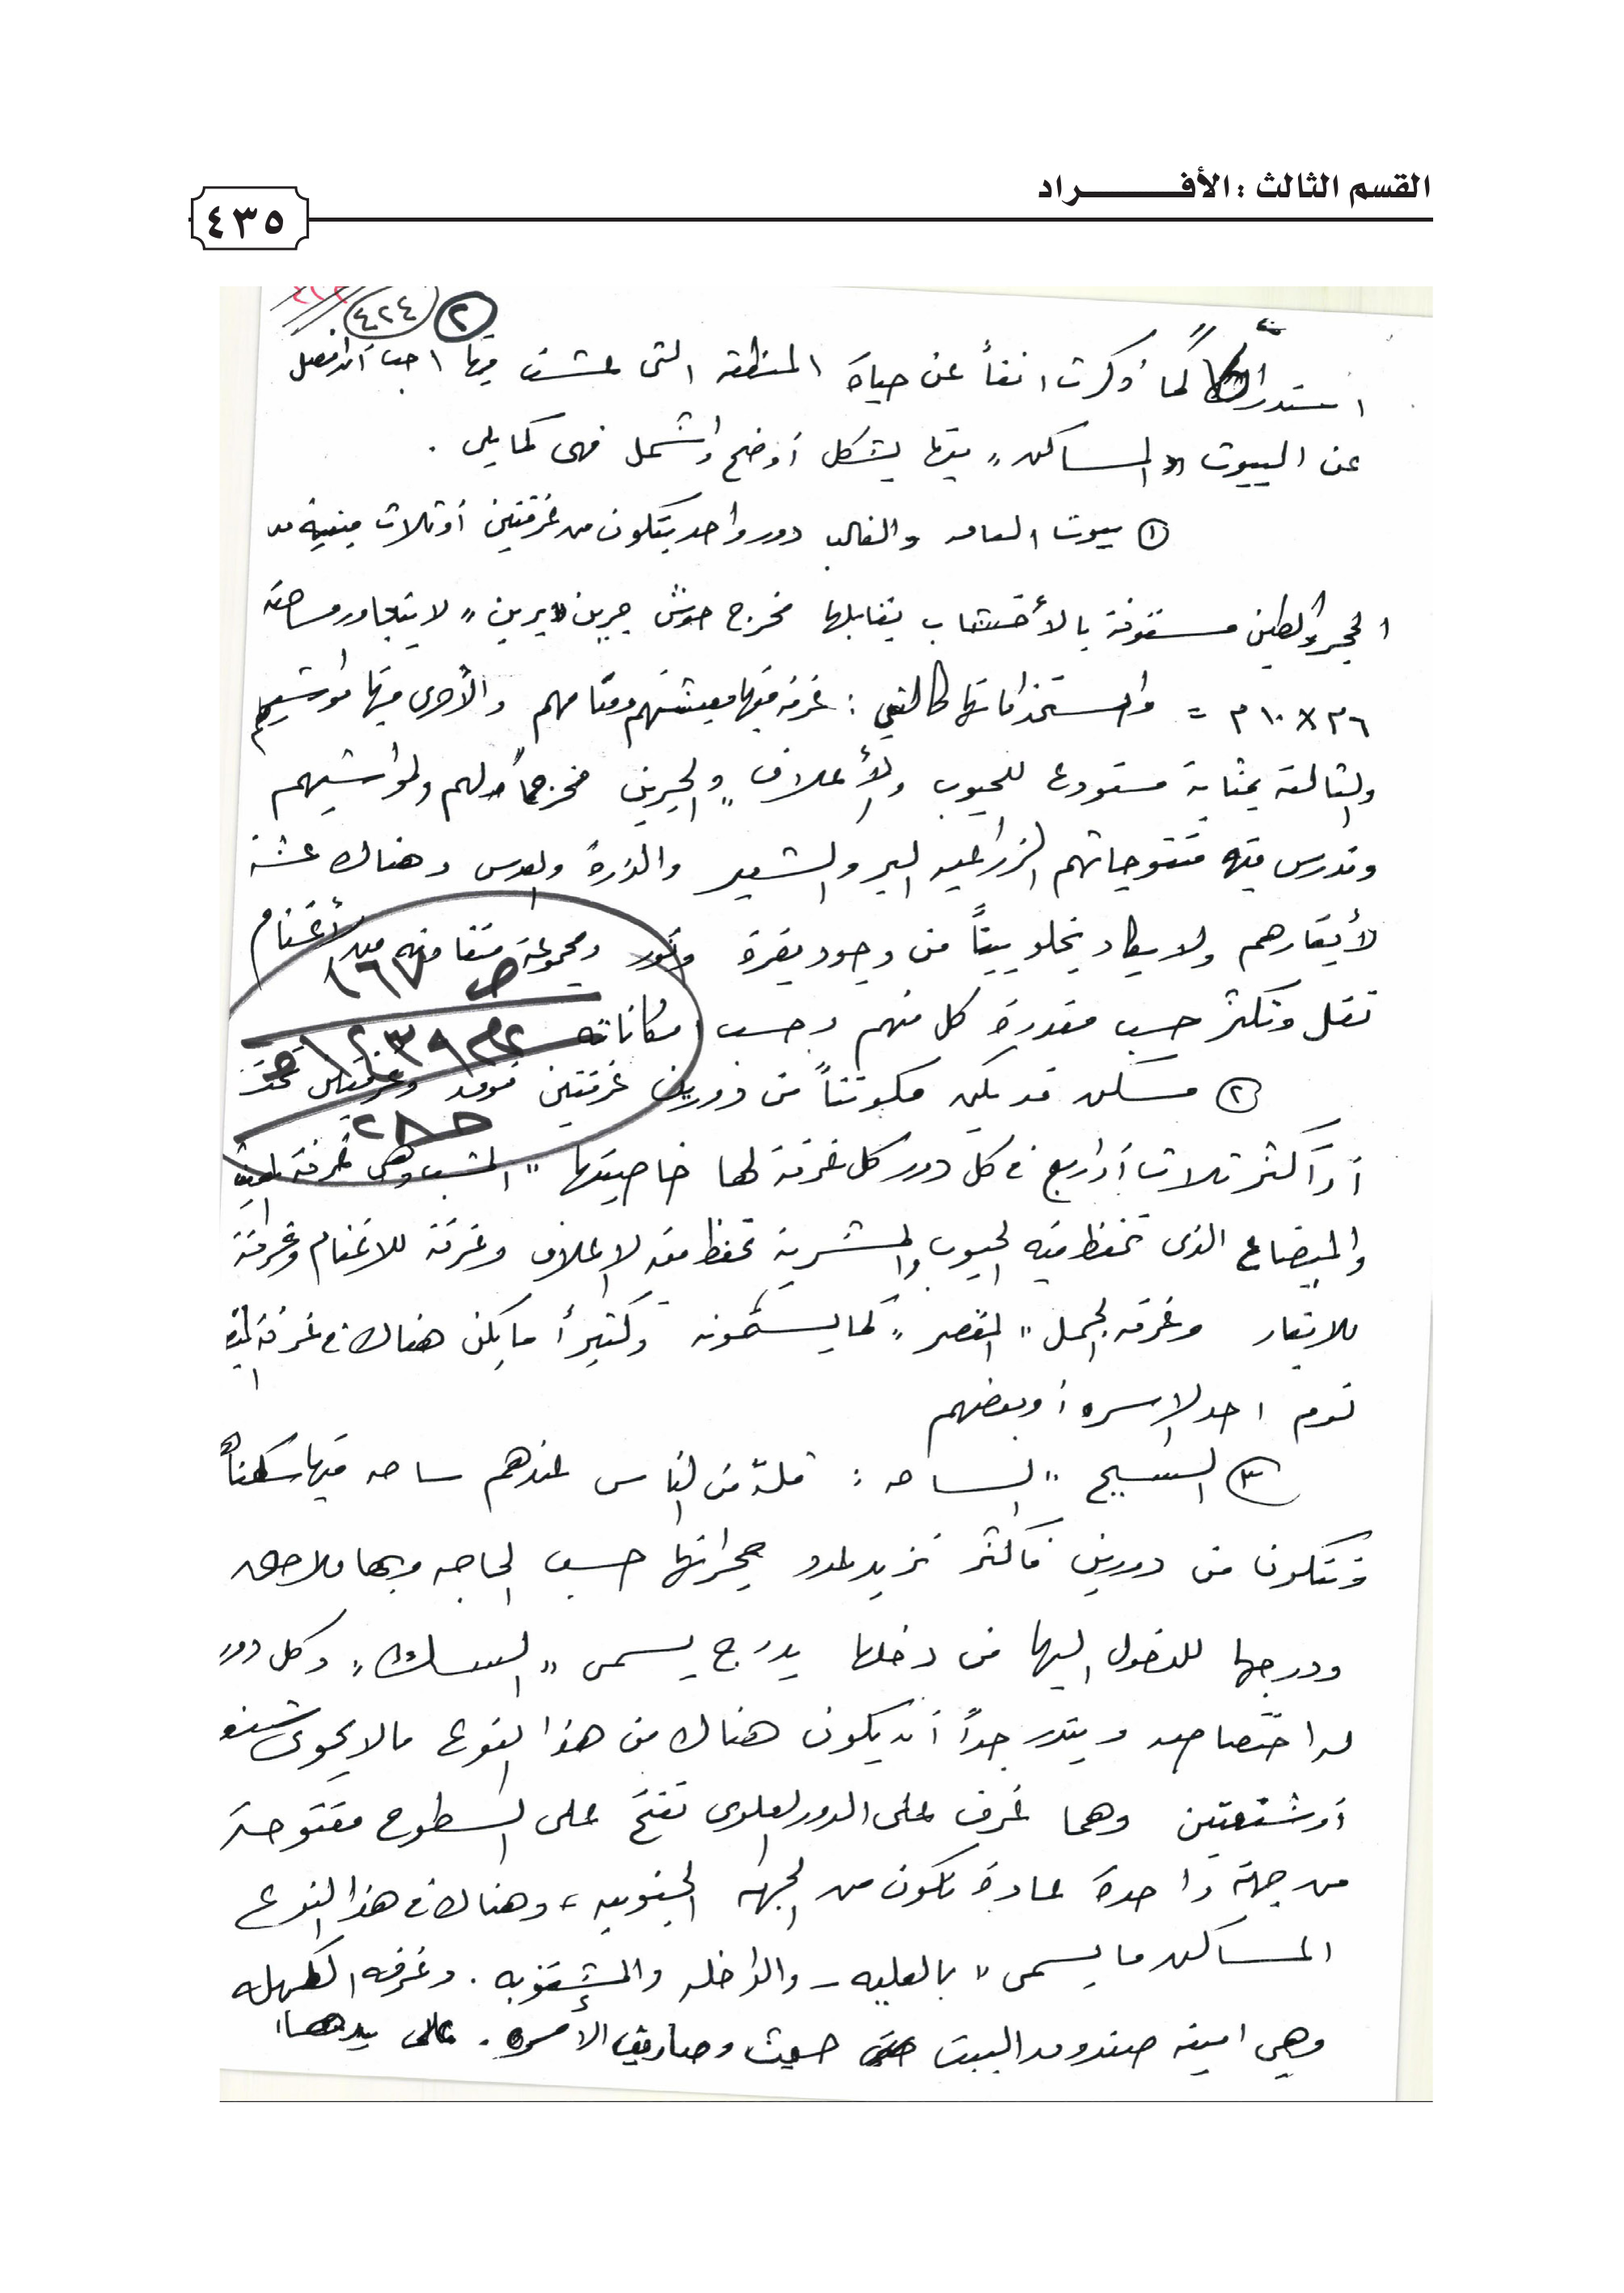 القسم الثالث : الأفــــــــراد
٤٣٥
٢ ٤٢٤
استدراكاً لما ذكرت انفاً عن حياة المنطقه التى عشت فيها احب أن افصل
عن البيوت "المساكن" فيها بشكل أوضح وأشمل فهى كما يلى .
١ بيوت العامه والغالب دور واحد يتكون من غرفتين أو ثلاث مبنية من
الحجر والطين مسقوفة بالأخشاب يقابلها مخرج حوش جرين "يرين" لا يتجاوز مساحته
٦م × ١٠م = واستخداماتها كالتي : غرفه فيها معيشتهم ومنامهم والأخرى فيها مواشيهم
والثالثه بمثابة مستودع للحبوب والأعلاف "والجرين مخرجاً لهم ولمواشيهم
وتدرس فيه منتوجاتهم الزراعيه البر والشعير والذرة والعدس وهناك عشة
لأبقارهم ولا يكاد يخلو بيتاً من وجود بقرة وثور ومجموعة متفاوته من الأغنام
ص ١٦٧
تقل وتكثر حسب مقدرة كل منهم وحسب امكاناته
٢ مسكن قد يكن مكوناً من دورين غرفتين فوق وغرفتين تحت
أو أكثر ثلاث أو أربع في كل دور كل غرفة لها خاصيتها " المشب وهى غرفة
والمبضاع الذى تحفظ فيه الحبوب والمشرية تحفظ فيه الاعلاف وغرفة للاغنام وغرفة
للابقار وغرفه الجمل " المقصر " كما يسمونه وكثيراً ما يكن هناك في غرفة
نوم احد الاسره أو بعضهم
٣ السسيح " الساحه : قلة من الناس عندهم ساحه فيها سكناً
وتتكون من دورين فأكثر تزيد عدد حجراتها حسب الحاجه وبها ملاحق
ودرجها للدخول اليها من دخلها بدرج يسمى " " وكل دور
له اختصاصه ويندر جداً أن يكون هناك من هذا النوع مالا يحوى
أو شنعتين وهما غرف على الدور العلوى تفتح على السطوح مفتوحة
من جهة واحدة عادة تكون من الجهه الجنوبيه ، وهناك في هذا النوع
المساكن ما يسمى " بالعليه - والداخله والمشقوبه . وغرفه الكهله
وهي امينه صندوق البيت حيث ومصاريف الأسره . على يدها